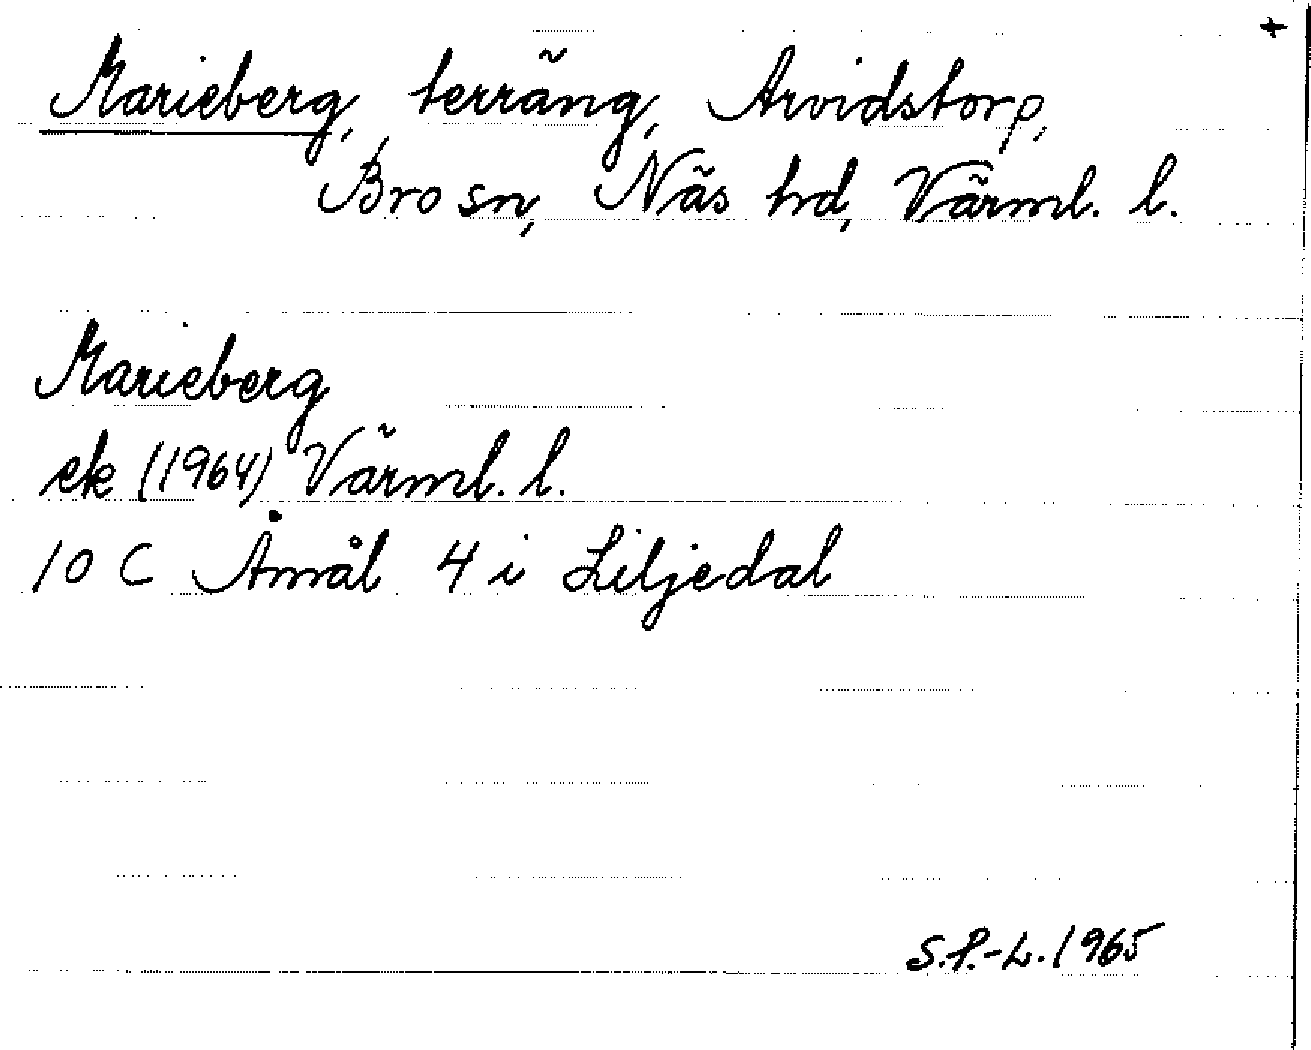 +
Marieberg, terräng, Arvidstorp,
Bro sn, Näs hd, Värml. l.
Marieberg
ek (1964) Värml. l.
10 C Åmål 4 i Liljedal
S.P.-L. 1965